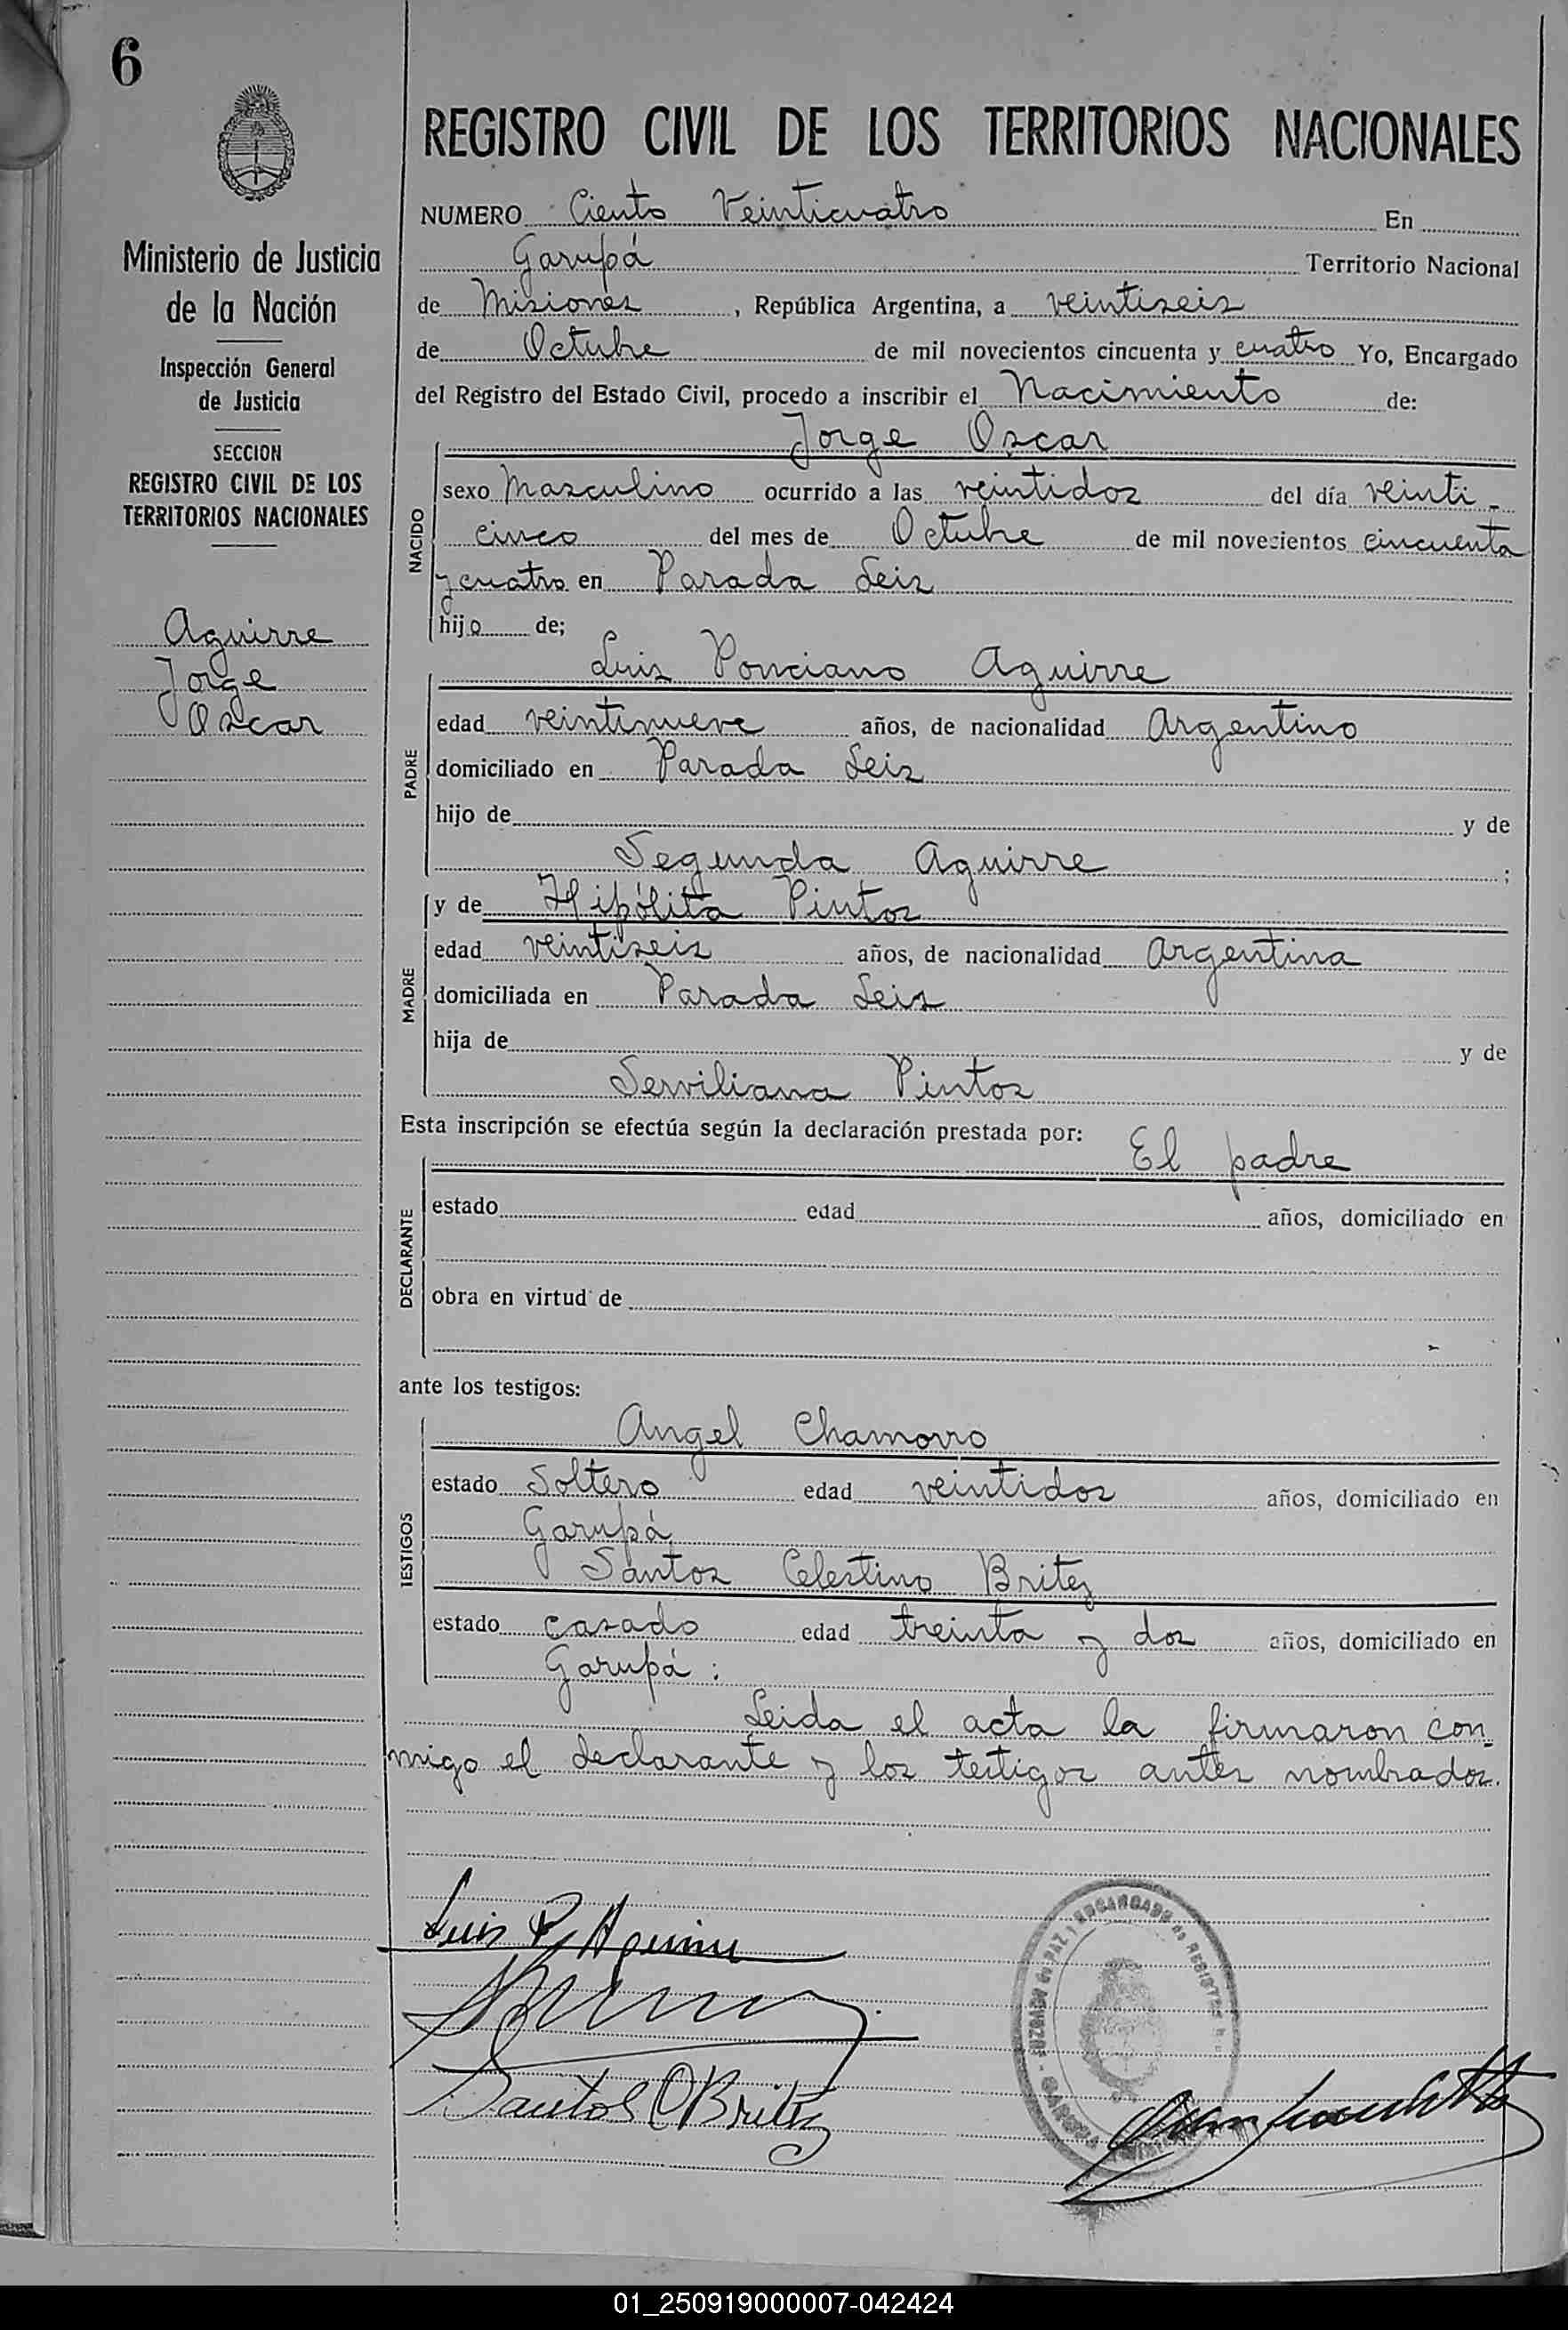 6
REGISTRO CIVIL DE LOS TERRITORIOS NACIONALES
Ministerio de Justicia
de la Nación
Inspección General
de Justicia
SECCION
REGISTRO CIVIL DE LOS
TERRITORIOS NACIONALES
Aguirre
Jorge
Oscar
NUMERO Ciento Veinticuatro En
Garupá Territorio Nacional
de Misiones, República Argentina, a veintiseis
de Octubre de mil novecientos cincuenta y cuatro Yo, Encargado
del Registro del Estado Civil, procedo a inscribir el Nacimiento de:
Jorge Oscar
NACIDO
sexo Masculino ocurrido a las veintidos del día veinti-
cinco del mes de Octubre de mil novecientos cincuenta
y cuatro en Parada Seis
hijo de;
Luis Ponciano Aguirre
PADRE
edad veintinueve años, de nacionalidad Argentino
domiciliado en Parada Seis
hijo de y de
Segunda Aguirre ;
y de Hipólita Pintos
MADRE
edad veintiseis años, de nacionalidad Argentina
domiciliada en Parada Seis
hija de y de
Serviliana Pintos
Esta inscripción se efectúa según la declaración prestada por: El padre
DECLARANTE
estado edad años, domiciliado en
obra en virtud de
ante los testigos:
Angel Chamorro
TESTIGOS
estado Soltero edad veintidos años, domiciliado en
Garupá
Santos Celestino Britez
estado casado edad treinta y dos años, domiciliado en
Garupá :
Leida el acta la firmaron con-
migo el declarante y los testigos antes nombrados.
Luis P. Aguirre
Santos C Britez
JUZGADO de PAZ y ENCARGADO de REGISTRO
GARUPA
01_250919000007-042424